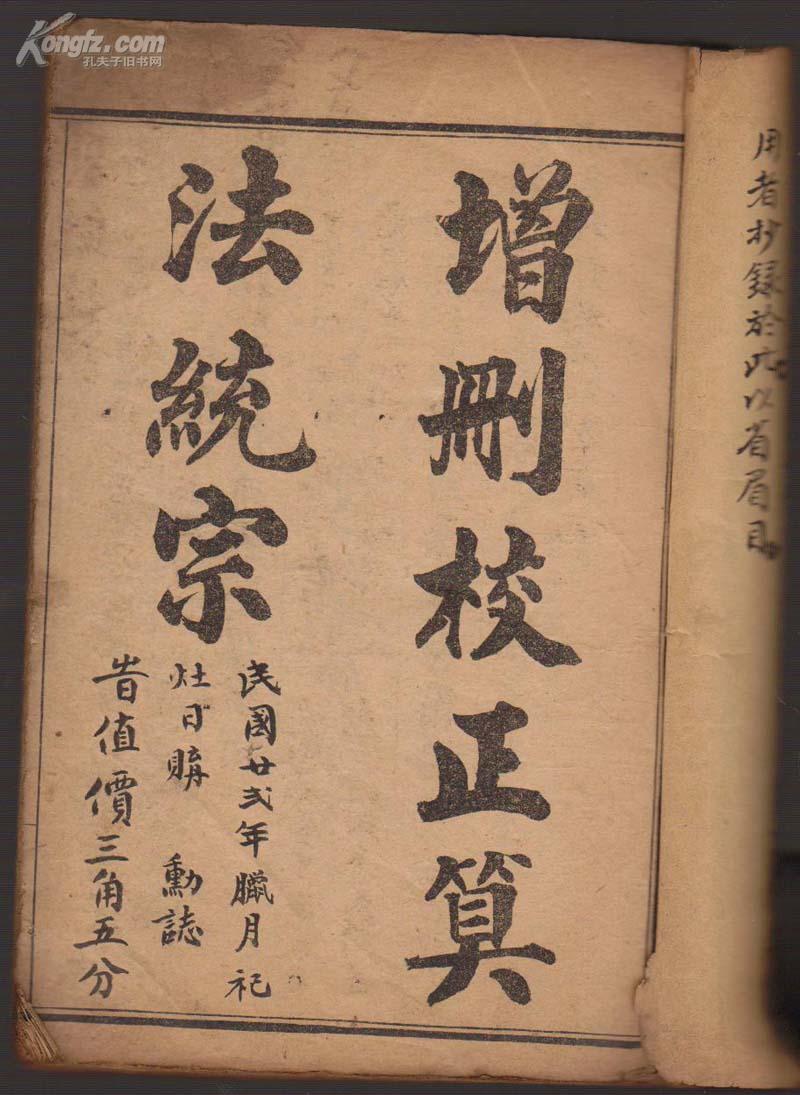 Kongfz.com
孔夫子旧书网
用者抄録於此以省眉目
增刪校正算
法統宗
民國廿弍年臘月祀
灶日購 勳誌
昔值價三角五分